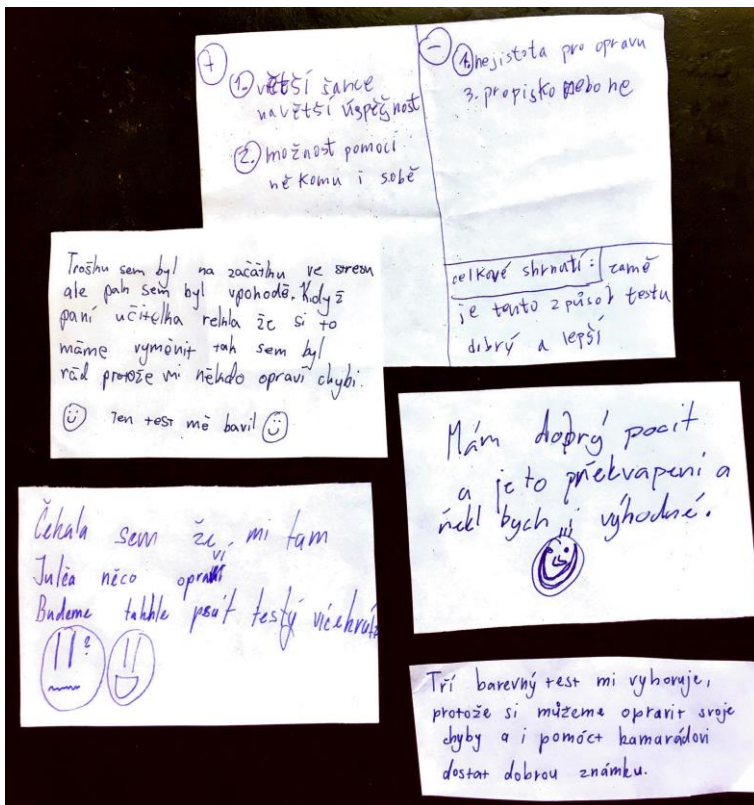 +
1. větší šance
na větší úspěšnost
2. možnost pomoci
někomu i sobě
-
1. nejistota pro opravu
3. propisko nebo ne
celkové shrnutí: zamě
je tento způsob testu
dobrý a lepší
Trošku sem byl na začátku ve stresu
ale pak sem byl vpohodě. Když
paní učitelka rekla že si to
máme vyměnit tak sem byl
rád protože mi někdo opraví chybi.
Ten test mě bavil
Mám dobrý pocit
a je to překvapení a
řekl bych i výhodné.
Čekala sem že mi tam
Julča něco opraví
Budeme takhle psát testý vícekrát
?
Tří barevný test mi vyhovuje,
protože si můžeme opravit svoje
chyby a i pomoct kamarádovi
dostat dobrou známku.